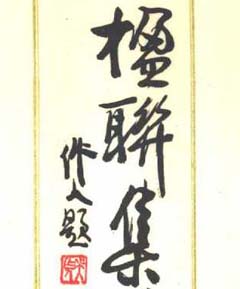 楹聯集
作人題